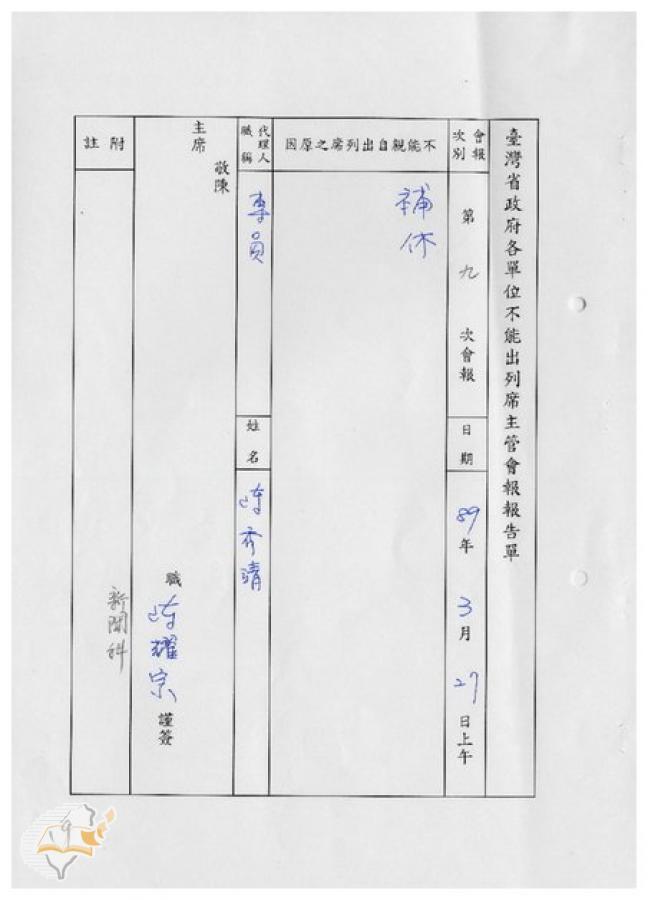 臺灣省政府各單位不能出列席主管會報報告單
會報次別
第九次會報
日期
89年3月27日上午
不能親自出列席之原因
補休
代理人職稱
專員
姓名
陳秀靖
敬陳
主席
職 陳耀宗 謹簽
附註
新聞科